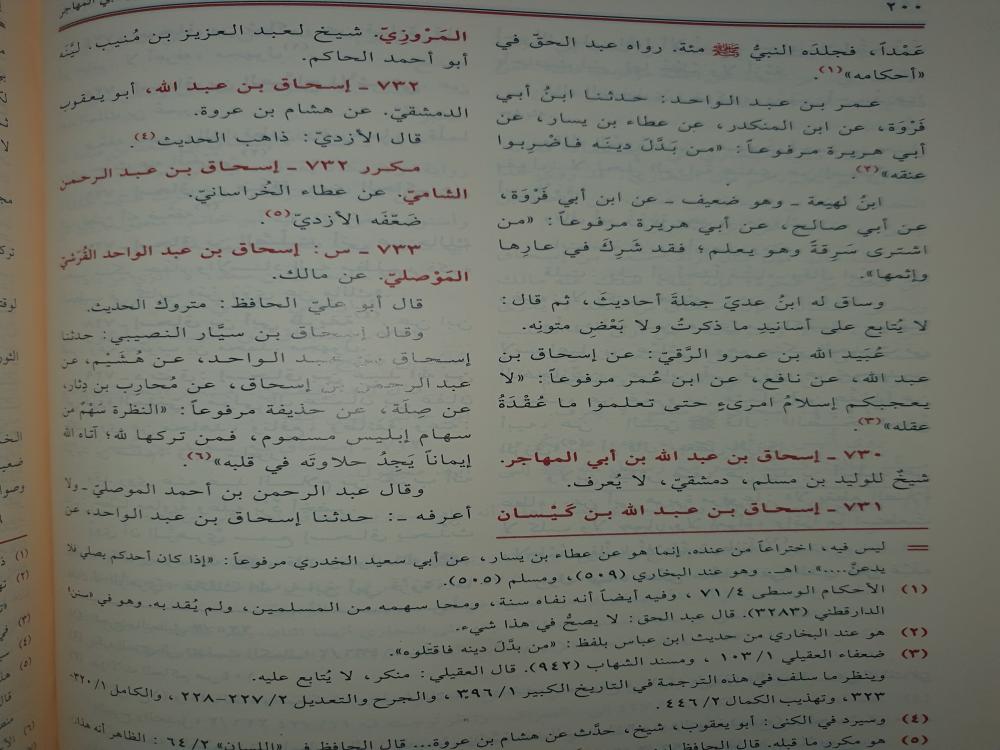 ٢٠٠
عَمْداً، فجلدَه النبيُّ ﷺ مئة. رواه عبد الحقّ في
«أحكامه»(١).
عمر بن عبد الواحد: حدثنا ابنُ أبي
فَرْوَة، عن ابن المنكدر، عن عطاء بن يسار، عن
أبي هريرة مرفوعاً: «من بَدَّلَ دينَه فاضْرِبوا
عنقه»(٢).
ابنُ لهيعة ـ وهو ضعيف ـ عن ابن أبي فَرْوَة،
عن أبي صالح، عن أبي هريرة مرفوعاً: «من
اشترى سَرِقةً وهو يعلم؛ فقد شَرِكَ في عارِها
وإثمها».
وساق له ابنُ عديّ جملةَ أحاديثَ، ثم قال:
لا يُتابع على أسانيدِ ما ذكرتُ ولا بَعْضِ متونِه.
عُبَيد الله بن عمرو الرَّقيّ: عن إسحاق بن
عبد الله، عن نافع، عن ابن عُمر مرفوعاً: «لا
يعجبكم إسلامُ امرىءٍ حتى تعلموا ما عُقْدَةُ
عقله»(٣).
٧٣٠ ـ إسحاق بن عبد الله بن أبي المهاجر.
شيخٌ للوليد بن مسلم، دمشقيّ، لا يُعرف.
٧٣١ ـ إسحاق بن عبد الله بن كَيْسان
المَرْوزيّ. شيخ لعبد العزيز بن مُنيب. ليَّنَه
أبو أحمد الحاكم.
٧٣٢ ـ إسحاق بن عبد الله، أبو يعقوب
الدمشقيّ. عن هشام بن عروة.
قال الأزديّ: ذاهب الحديث(٤).
مكرر ٧٣٢ ـ إسحاق بن عبد الرحمن
الشاميّ. عن عطاء الخُراسانيّ.
ضَعَّفَه الأزديّ(٥).
٧٣٣ ـ س: إسحاق بن عبد الواحد القُرَشيّ
المَوْصليّ. عن مالك.
قال أبو عليّ الحافظ: متروك الحديث.
وقال إسحاق بن سيَّار النصيبي: حدثنا
إسحاق بن عبد الواحد، عن هُشَيْم، عن
عبد الرحمن بن إسحاق، عن مُحارِب بن دِثار،
عن صِلَة، عن حذيفة مرفوعاً: «النظرة سَهْمٌ من
سهام إبليس مسموم، فمن تركها لله؛ آتاه الله
إيماناً يَجِدُ حلاوتَه في قلبه»(٦).
وقال عبد الرحمن بن أحمد الموصليّ ـ ولا
أعرفه ـ: حدثنا إسحاق بن عبد الواحد، عن
= ليس فيه، اختراعاً من عنده. إنما هو عن عطاء بن يسار، عن أبي سعيد الخدري مرفوعاً: «إذا كان أحدكم يصلي فلا
يدعنّ....». اهـ. وهو عند البخاري (٥٠٩)، ومسلم (٥٠٥).
(١) الأحكام الوسطى ٧١/٤ ، وفيه أيضاً أنه نفاه سنة، ومحا سهمه من المسلمين، ولم يُقد به. وهو في «سنن»
الدارقطني (٣٢٨٣). قال عبد الحق: لا يصحُّ في هذا شيء.
(٢) هو عند البخاري من حديث ابن عباس بلفظ: «من بدَّل دينه فاقتلوه».
(٣) ضعفاء العقيلي ١٠٣/١ ، ومسند الشهاب (٩٤٢). قال العقيلي: منكر، لا يُتابع عليه.
وينظر ما سلف في هذه الترجمة في التاريخ الكبير ٣٩٦/١ ، والجرح والتعديل ٢٢٧/٢-٢٢٨ ، والكامل ٣٢٠/١-
٣٢٣ ، وتهذيب الكمال ٤٤٦/٢ .
(٤) وسيرد في الكنى: أبو يعقوب، شيخ، حدَّث عن هشام بن عروة... قال الحافظ في «اللسان» ٦٤/٢ : الظاهر أنه هذا.
(٥) هو مكرر ما قبله. قال الحافظ